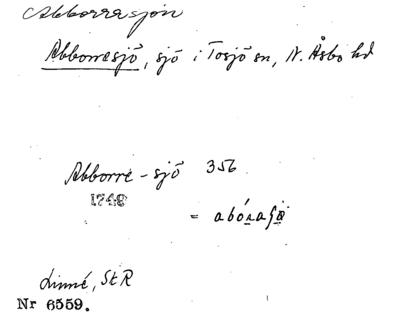 Abborrasjön
Abborresjö, sjö i Tosjö sn, N. Åsbo hd
Abborre-sjö 356
1749
= abó
Linné, St R
Nr 6559.